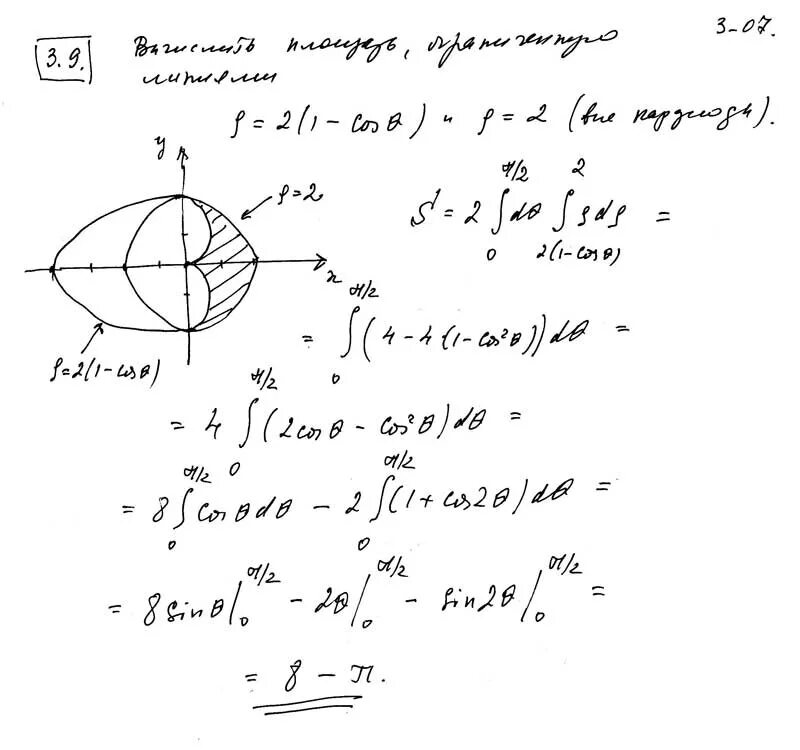 3-07.
3.9. Вычислить площадь, ограниченную
линиями
ρ = 2(1 - cos θ) и ρ = 2 (вне кардиоды).
y
ρ=2
x
ρ=2(1-cosθ)
S = 2 ∫₀^(π/2) dθ ∫_(2(1-cosθ))^2 ρdρ =
= ∫₀^(π/2) (4 - 4(1-cos²θ))dθ =
= 4 ∫₀^(π/2) (2cosθ - cos²θ)dθ =
= 8 ∫₀^(π/2) cosθdθ - 2 ∫₀^(π/2) (1+cos2θ)dθ =
= 8sinθ|₀^(π/2) - 2θ|₀^(π/2) - sin2θ|₀^(π/2) =
= 8 - π.